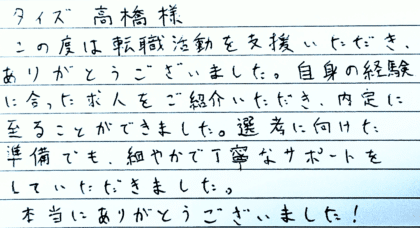 タイズ 高橋様
この度は転職活動を支援いただき、
ありがとうございました。自身の経験
に合った求人をご紹介いただき、内定に
至ることができました。選考に向けた
準備でも、細やかで丁寧なサポートを
していただきました。
本当にありがとうございました!